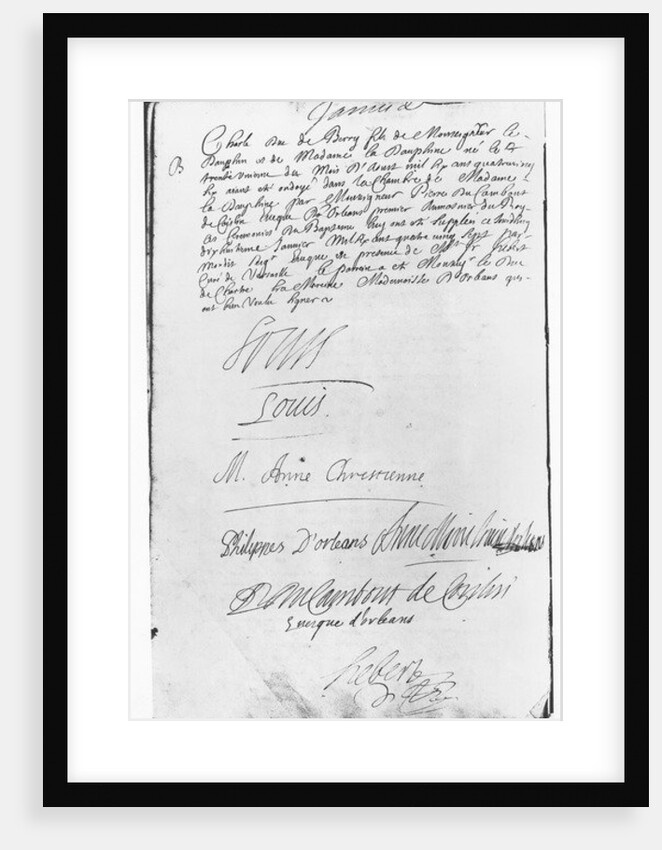 Janvier
B
Charle Duc de Berry fils de Monseigneur le
Dauphin et de Madame la Dauphine né le
trente unieme du Mois D'Aoust mil six cens quatrevingt
six aiant eté ondoyé dans la Chambre de Madame
la Dauphine par Monseigneur Pierre Du Cambout
de Coislin Eveque D'Orleans premier Aumosnier du Roy
les Ceremonies du Baptesme luy ont eté suppleées ce
dixhuitieme Janvier Mil six cens quatre vingt sept par
mondit Seigr Eveque en presence de Mr hebert
Curé de Versaille le parrain a eté Monsegr le Duc
de Chartre la Mareine Mademoiselle D'Orleans qui
ont bien Voulu signer
Louis
Louis.
M. Anne Chrestienne
Philippes D'orleans Anne Marie
P. Du Cambout de Coislin
Evesque d'orleans
hebert